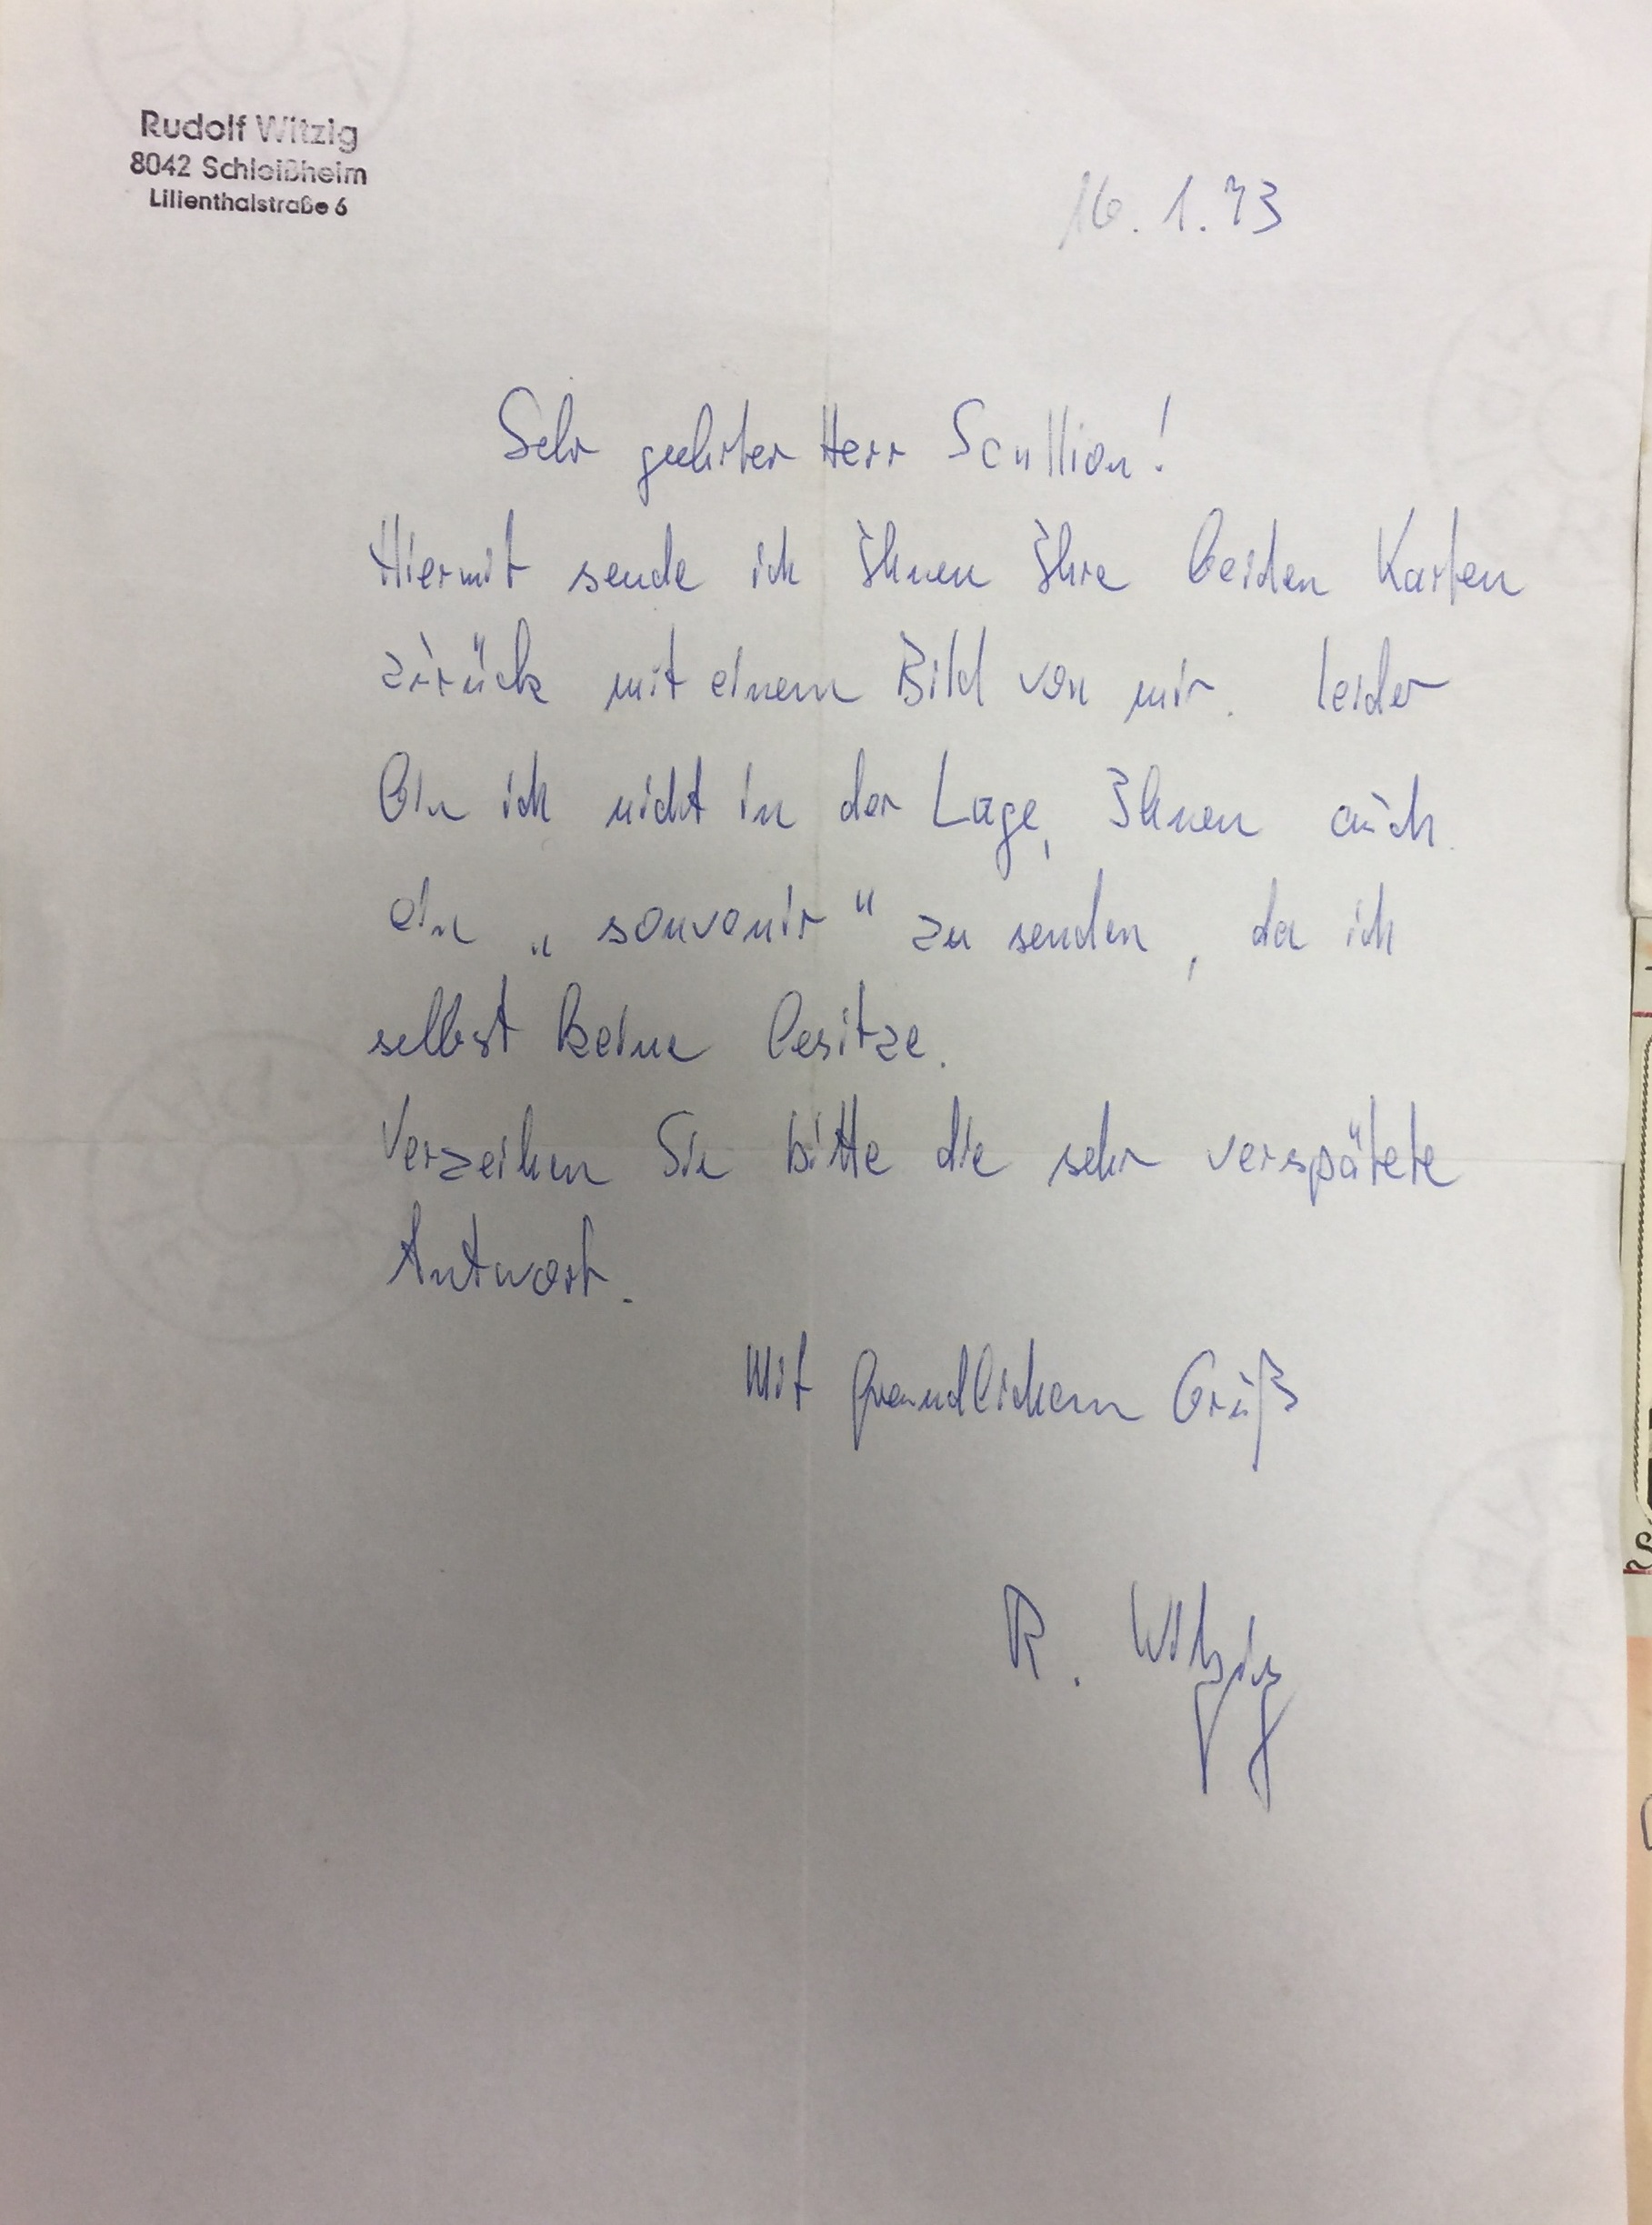 Rudolf Witzig
8042 Schleißheim
Lilienthalstraße 6
16. 1. 73
Sehr geehrter Herr Scullion!
Hiermit sende ich Ihnen Ihre beiden Karten
zurück mit einem Bild von mir. Leider
bin ich nicht in der Lage, Ihnen auch
ein „souvenir" zu senden, da ich
selbst keine besitze.
Verzeihen Sie bitte die sehr verspätete
Antwort.
Mit freundlichem Gruß
R. Witzig